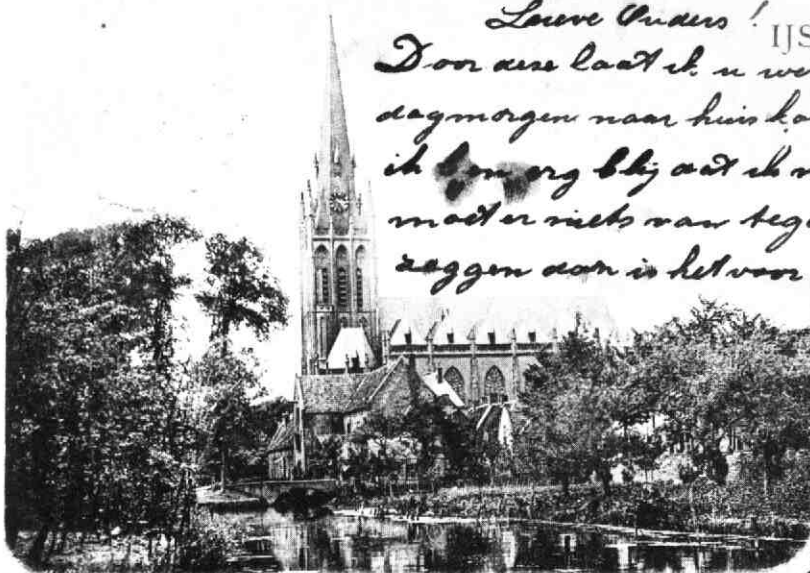 Lieve Ouders!
IJS
Door deze laat ik u we
dagmorgen naar huis ko
ik ben erg blij dat ik n
moet er niets van tege
zeggen dan is het voor